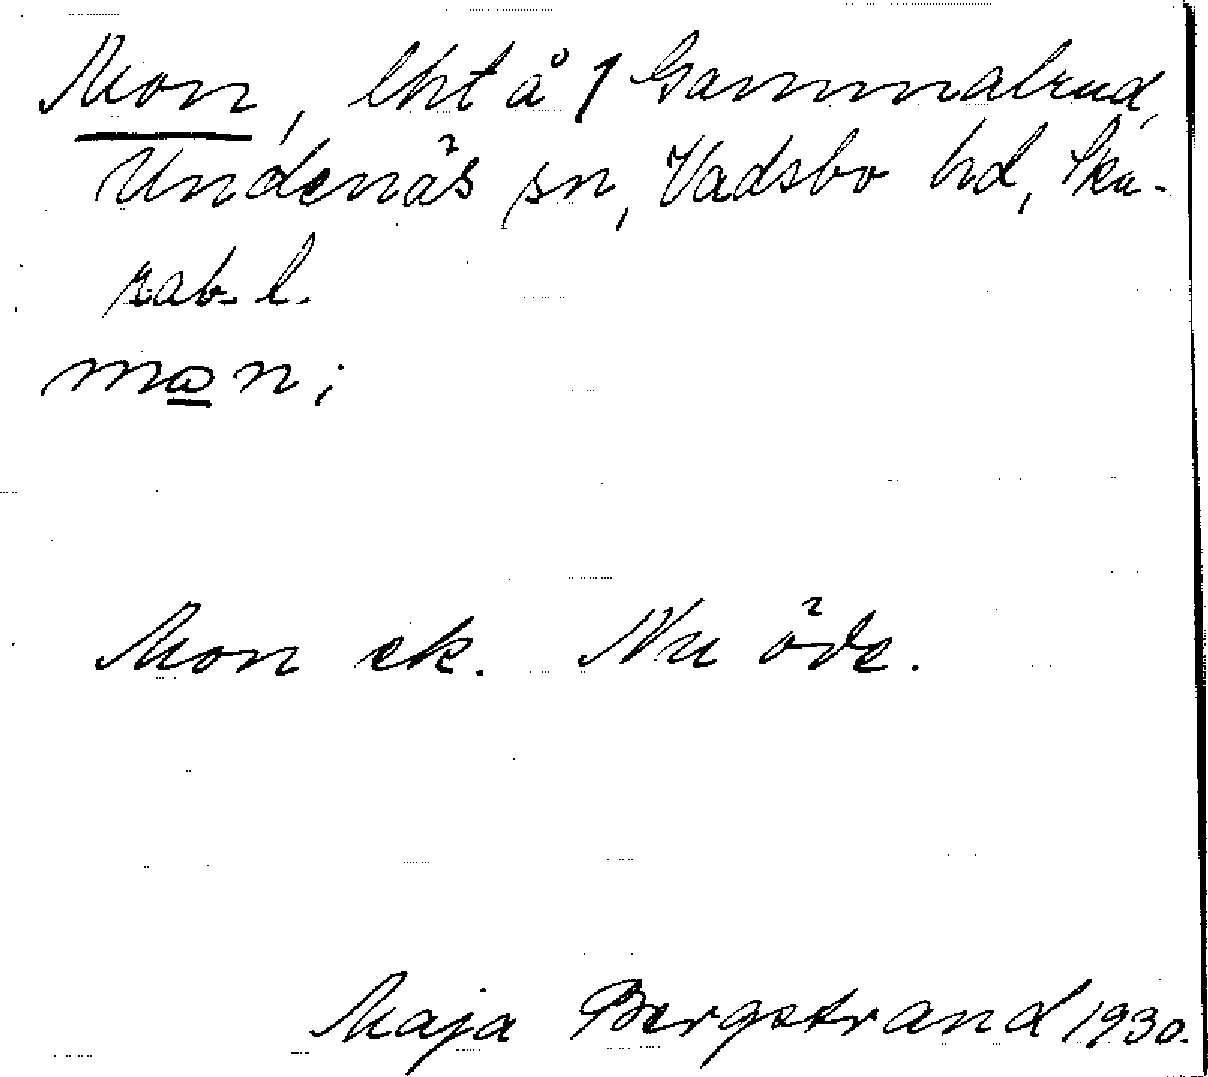 Mon, lht å 1 Gammalrud,
Undenäs sn, Vadsbo hd, Ska-
rab. l.
mɷn;
Mon ek. Nu öde.
Maja Bergstrand 1930.